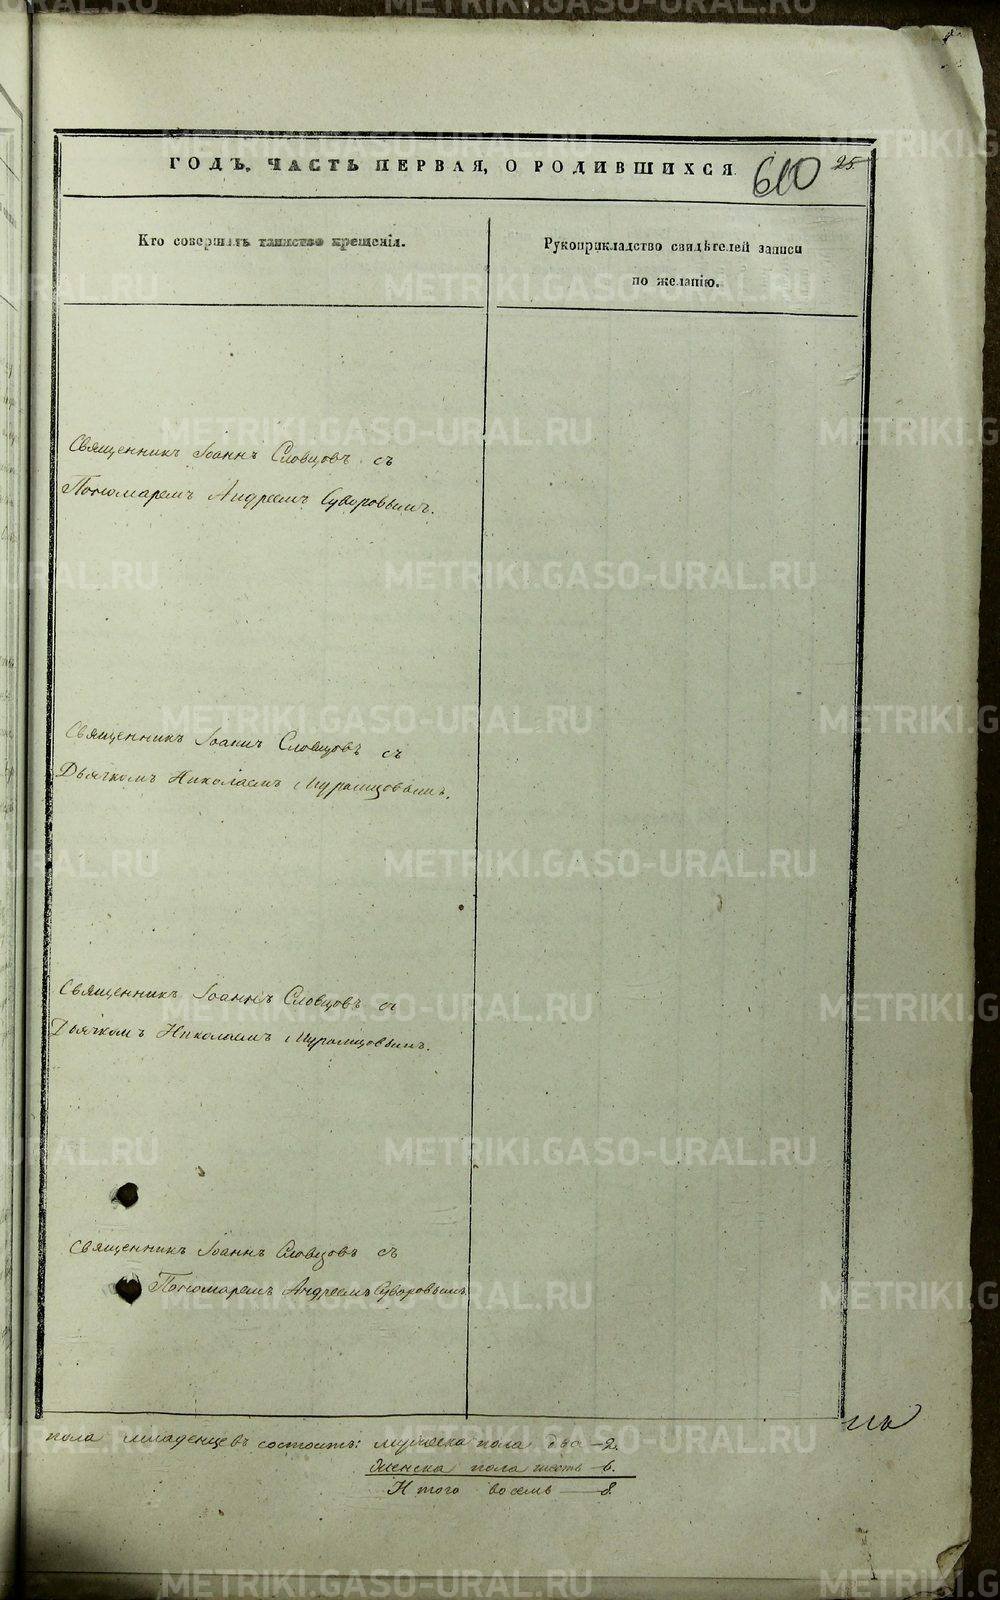 ГОДЪ, ЧАСТЬ ПЕРВАЯ, О РОДИВШИХСЯ
610
25.
Кто совершалъ таинство крещенія.
Рукоприкладство свидѣтелей записи
по желанію.
Священникъ Іоаннъ Словцовъ съ
Пономаремъ Андреемъ Суворовымъ.
Священникъ Іоаннъ Словцовъ съ
Дьячкомъ Николаемъ Мурамцовымъ.
Священникъ Іоаннъ Словцовъ съ
Дьячкомъ Николаемъ Мурамцовымъ.
Священникъ Іоаннъ Словцовъ съ
Пономаремъ Андреемъ Суворовымъ
пола младенцевъ состоитъ: мужеска пола два - 2.
Женска пола шесть - 6.
Итого восемь - 8.
METRIKI.GASO-URAL.RU